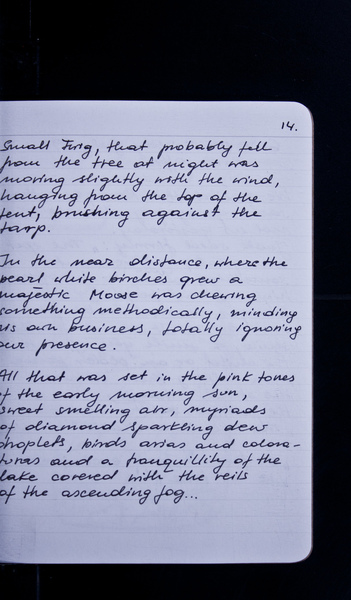 14.
Small Twig, that probably fell
from the tree at night was
moving slightly with the wind,
hanging from the top of the
tent, brushing against the
tarp.
In the near distance, where the
pearl white birches grew a
majestic Moose was chewing
something methodically, minding
his own business, totally ignoring
our presence.
All that was set in the pink tones
of the early morning sun,
sweet smelling air, myriads
of diamond sparkling dew
droplets, birds arias and colora-
turas and a tranquillity of the
lake covered with the veils
of the ascending fog...